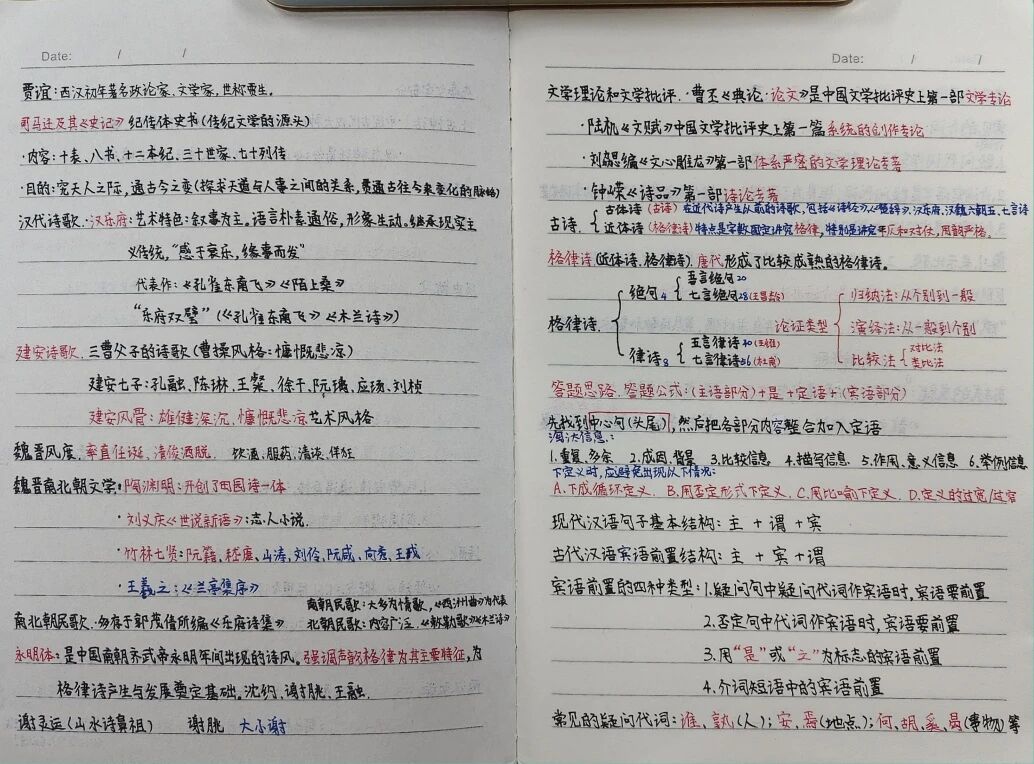 Date: / /
贾谊:西汉初年著名政论家、文学家,世称贾生。
司马迁及其《史记》 纪传体史书(传纪文学的源头)
·内容:十表、八书、十二本纪、三十世家、七十列传
·目的:究天人之际,通古今之变(探求天道与人事之间的关系,贯通古往今来变化的脉络)
汉代诗歌·汉乐府·艺术特色:叙事为主。语言朴素通俗,形象生动。继承现实主
义传统,“感于哀乐,缘事而发”
代表作:《孔雀东南飞》《陌上桑》
“乐府双璧”(《孔雀东南飞》《木兰诗》)
建安诗歌.三曹父子的诗歌(曹操风格:慷慨悲凉)
建安七子:孔融、陈琳、王粲、徐干、阮瑀、应玚、刘桢
建安风骨:雄健深沉、慷慨悲凉艺术风格
魏晋风度、率直任诞、清俊洒脱. 饮酒、服药、清谈、佯狂
魏晋南北朝文学·陶渊明:开创了田园诗一体
·刘义庆《世说新语》:志人小说.
·竹林七贤:阮籍、嵇康、山涛、刘伶、阮咸、向秀、王戎
·王羲之:《兰亭集序》
南朝民歌:大多为情歌,《西洲曲》为代表
南北朝民歌.多存于郭茂倩所编《乐府诗集》 北朝民歌:内容广泛.《敕勒歌》《木兰诗》
永明体:是中国南朝齐武帝永明年间出现的诗风。强调声韵格律为其主要特征,为
格律诗产生与发展奠定基础。沈约、谢朓、王融.
谢灵运(山水诗鼻祖) 谢朓 大小谢
Date: / /
文学理论和文学批评.·曹丕《典论·论文》是中国文学批评史上第一部文学专论
·陆机《文赋》中国文学批评史上第一篇系统的创作专论
·刘勰编《文心雕龙》第一部体系严密的文学理论专著
·钟嵘《诗品》第一部诗论专著
古体诗(古诗)在近代诗产生以前的诗歌,包括《诗经》、《楚辞》、汉乐府、汉魏六朝五、七言诗
古诗.
近体诗(格律诗)特点是字数固定讲究格律,特别是讲究平仄和对仗,用韵严格.
格律诗(近体诗、格律诗).唐代形成了比较成熟的格律诗。
五言绝句20
绝句4 七言绝句28(王昌龄) 归纳法:从个别到一般
格律诗. 论证类型 演绎法:从一般到个别
五言律诗40(王维) 对比法
律诗8 七言律诗56(杜甫) 比较法 类比法
答题思路.答题公式:(主语部分)+是+定语+(宾语部分)
先找到中心句(头尾),然后把各部分内容整合加入定语
淘汰信息:
1.重复、多余 2.成因、背景 3.比较信息 4.描写信息 5.作用、意义信息 6.举例信息
下定义时,应避免出现以下情况:
A.下成循环定义. B.用否定形式下定义. C.用比喻下定义. D.定义的过宽/过窄
现代汉语句子基本结构:主+谓+宾
古代汉语宾语前置结构:主+宾+谓
宾语前置的四种类型:1.疑问句中疑问代词作宾语时,宾语要前置
2.否定句中代词作宾语时,宾语要前置
3.用“是”或“之”为标志的宾语前置
4.介词短语中的宾语前置
常见的疑问代词:谁、孰(人);安、焉(地点);何、胡、奚、曷(事物)等